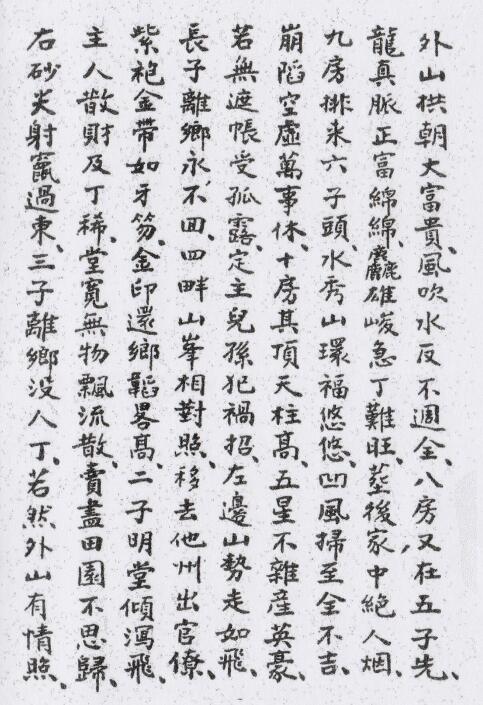 外山拱朝大富貴、風吹水反不週全、八房又在五子先、
龍真脈正富綿綿、麤雄峻急丁難旺、塟後家中絶人烟、
九房排来六子頭、水秀山環福悠悠、凹風掃至全不吉、
崩陷空虛萬事休、十房其頂天柱高、五星不雜産英豪、
若無遮帳受孤露、定主兒孫犯禍招、左邊山勢走如飛、
長子離鄉永不囬、四畔山峯相對照、移去他州出官僚、
紫袍金帶如牙笏、金印還鄉韜畧高、二子明堂傾瀉飛、
主人散財及丁稀、堂寬無物飄流散、賣盡田園不思歸、
右砂尖射竄過東、三子離鄉没人丁、若然外山有情照、